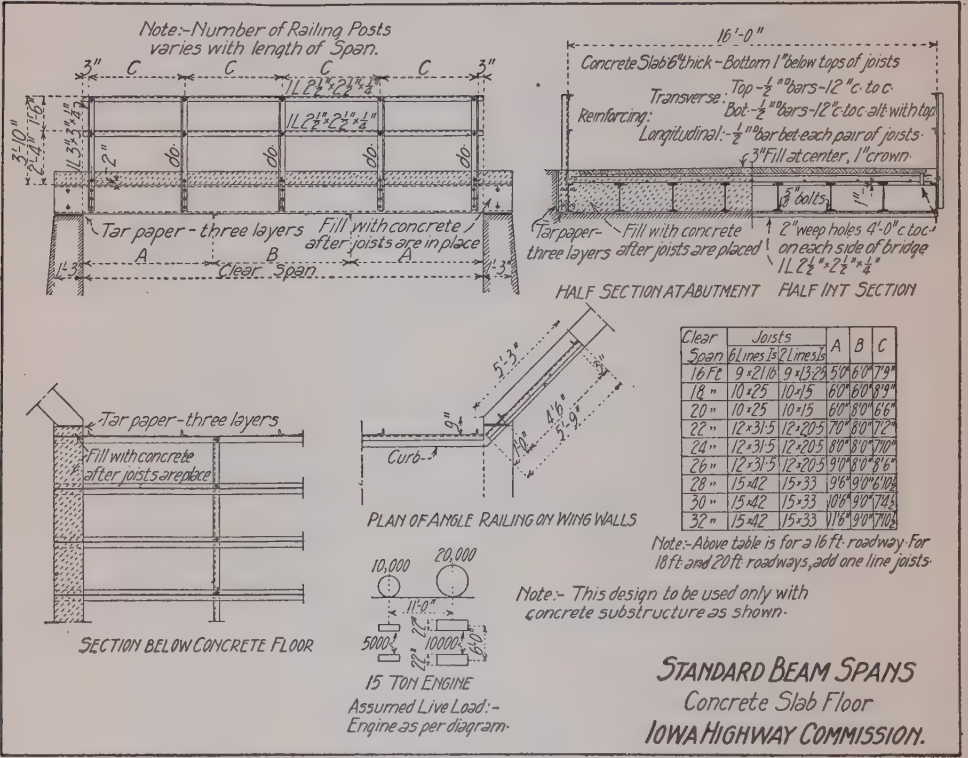 Note:-Number of Railing Posts
varies with length of Span.
3" C C C C 3"
1L 2½"×2½"×¼"
1L 2½"×2½"×¼"
1L 3"×3"×¼"
3'-10"
2'-4"
1'-6"
do.
do.
do.
Tar paper - three layers
Fill with concrete
after joists are in place
A B A
1'-3" Clear Span 1'-3"
16'-0"
Concrete Slab 6" thick - Bottom 1" below tops of joists
Transverse: Top - ½"□ bars - 12" c. to c.
Reinforcing: Bot - ½"□ bars - 12" c. to c. alt with top
Longitudinal: - ½"□ bar bet each pair of joists.
3" Fill at center, 1" crown.
⅝" bolts
1"
Tar paper-
three layers
Fill with concrete
after joists are placed
2" weep holes 4'-0" c to c
on each side of bridge
1L 2½"×2½"×¼"
HALF SECTION AT ABUTMENT HALF INT SECTION
Tar paper - three layers
Fill with concrete
after joists are place
SECTION BELOW CONCRETE FLOOR
5'-3"
9"
3"
4'-6"
5'-9"
1'-0"
Curb
PLAN OF ANGLE RAILING ON WING WALLS
Clear Span Joists A B C
6 Lines Is 2 Lines Is
16 Ft 9×21 lb 9×13·25 5'0" 6'0" 7'9"
18 " 10×25 10×15 6'0" 6'0" 8'9"
20 " 10×25 10×15 6'0" 8'0" 6'6"
22 " 12×31·5 12×20·5 7'0" 8'0" 7'2"
24 " 12×31·5 12×20·5 8'0" 8'0" 7'10"
26 " 12×31·5 12×20·5 9'0" 8'0" 8'6"
28 " 15×42 15×33 9'6" 9'0" 6'10½
30 " 15×42 15×33 10'6" 9'0" 7'4½
32 " 15×42 15×33 11'6" 9'0" 7'10½
Note:-Above table is for a 16 ft. roadway. For
18 ft. and 20 ft. roadways, add one line joists.
Note:- This design to be used only with
concrete substructure as shown.
10,000 20,000
11'-0"
5000 22" 10000 22" 6'-0"
15 TON ENGINE
Assumed Live Load:-
Engine as per diagram.
STANDARD BEAM SPANS
Concrete Slab Floor
IOWA HIGHWAY COMMISSION.